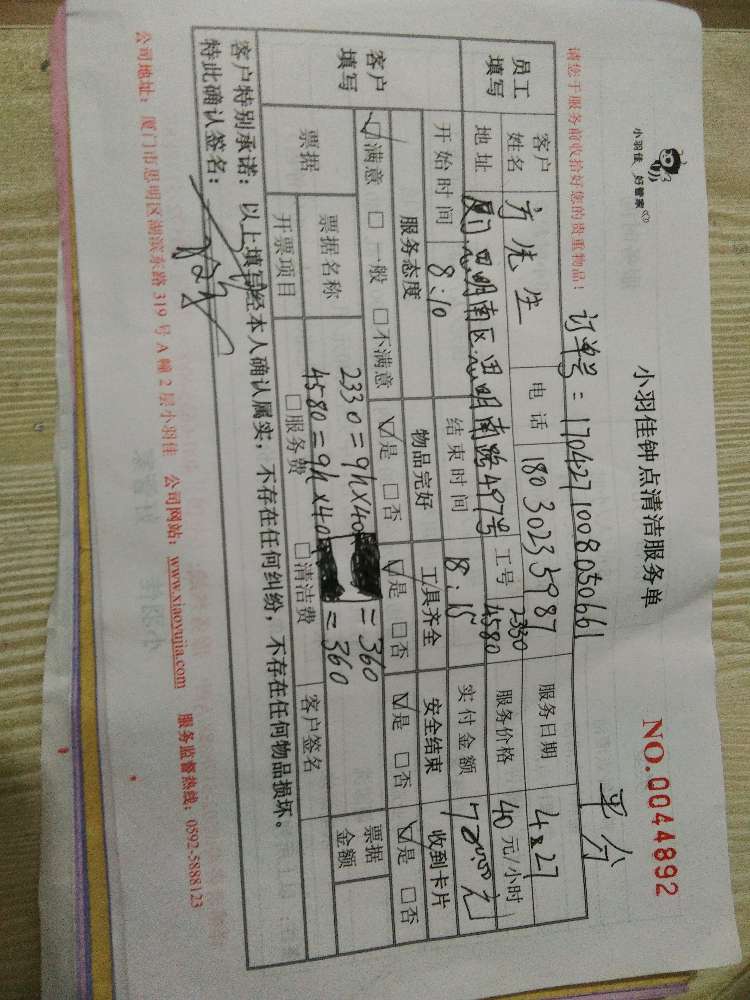 小羽佳 好管家
小羽佳钟点清洁服务单
NO.0044892
请您于服务前收拾好您的贵重物品！
订单号：1704271008050661
平分
员工填写
客户姓名 方先生 电话 18030235987 服务日期 4月27
地址 厦门思明南区思明南路497号 工号 2330 4580 服务价格 40元/小时
开始时间 8:10 结束时间 18:15 实付金额 720.00元
客户填写
服务态度 物品完好 工具齐全 安全结束 收到卡片
☑满意 □一般 □不满意 ☑是 □否 ☑是 □否 ☑是 □否 ☑是 □否
票据 票据名称 2330=9h×40 =360 票据金额
4580=9h×40 =360
开票项目 □服务费 □清洁费 客户签名
客户特别承诺：以上填写经本人确认属实，不存在任何纠纷，不存在任何物品损坏。
特此确认签名：
公司地址：厦门市思明区湖滨东路319号A幢2层小羽佳 公司网站：www.xiaoyujia.com 服务监督热线：0592-5888123